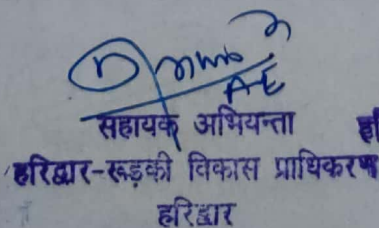 AE
सहायक अभियन्ता
हरिद्वार-रूड़की विकास प्राधिकरण
हरिद्वार